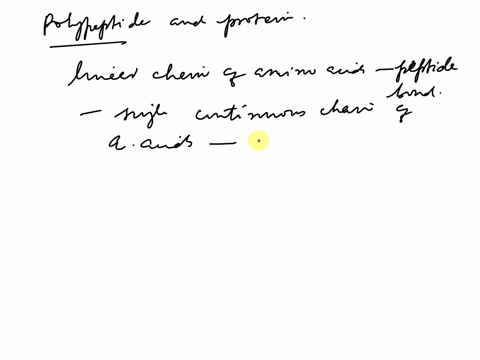 Polypeptide and protein.
linear chain of amino acids — peptide
bond.
— single continuous chain of
a. acids —